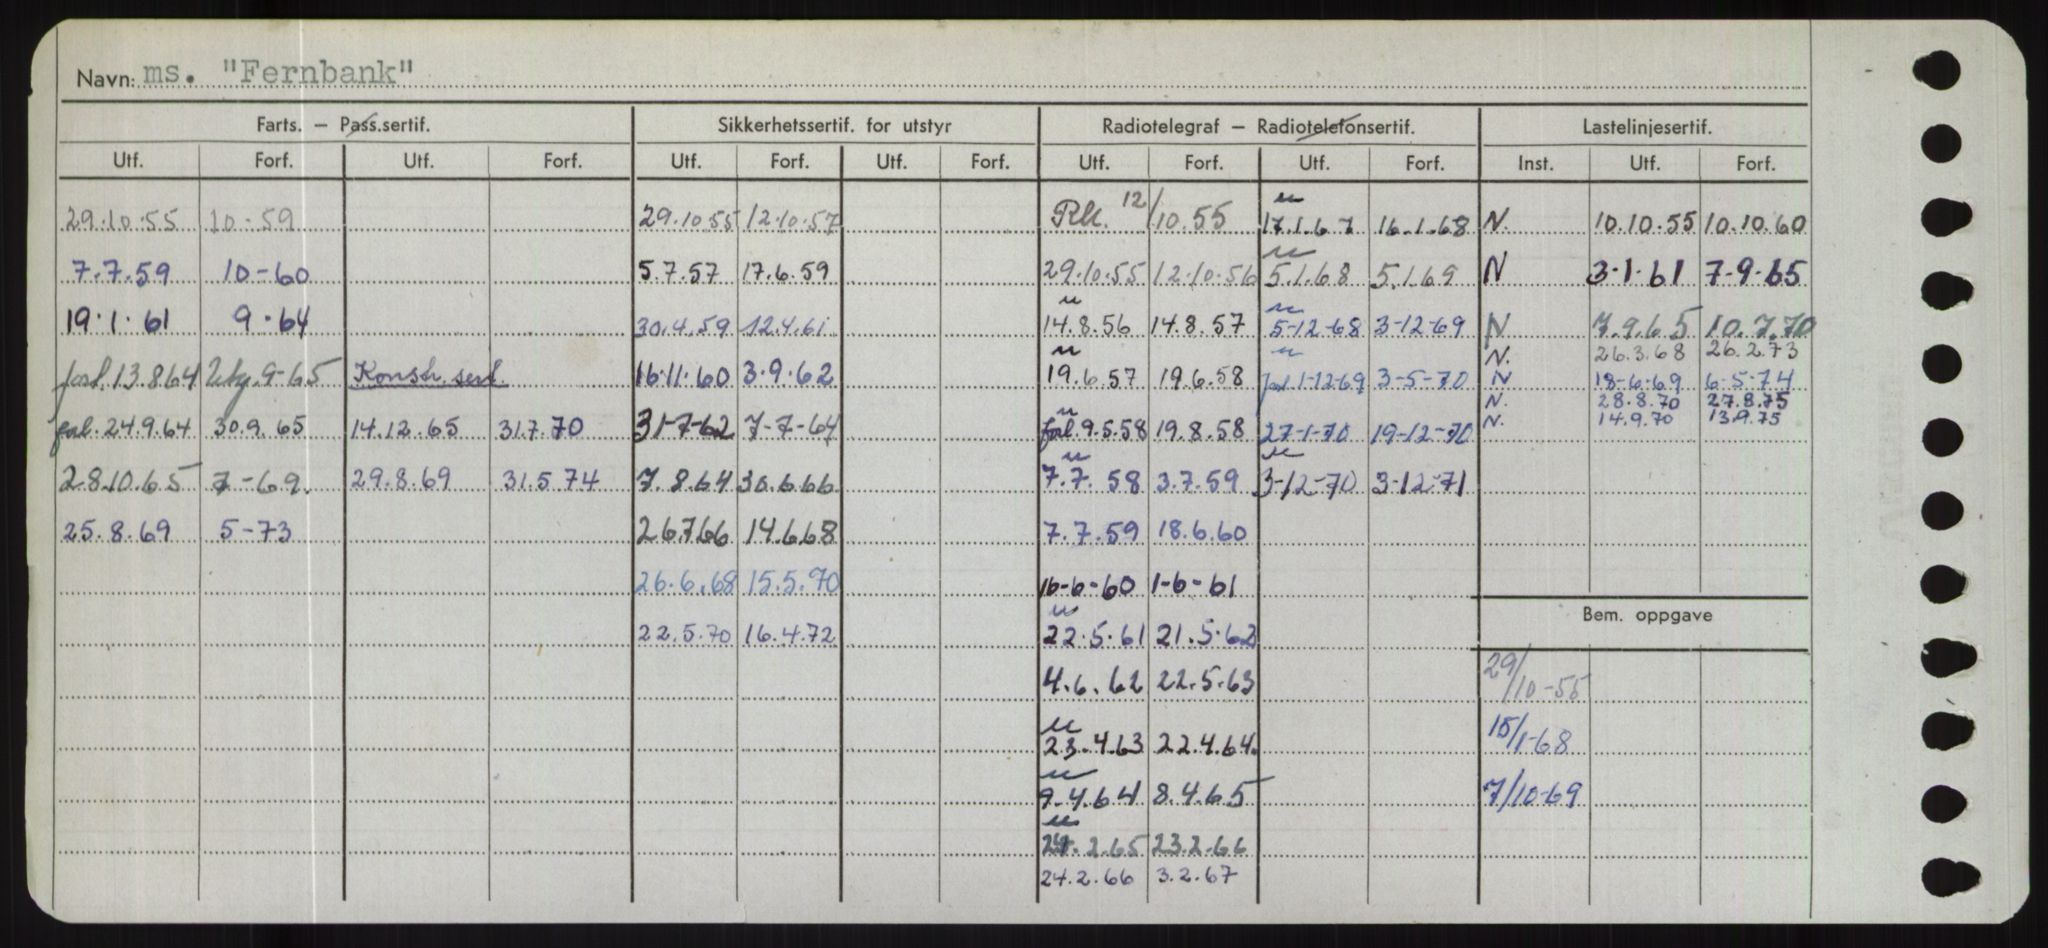 Navn: ms. "Fernbank"
Farts. — Pass.sertif. Sikkerhetssertif. for utstyr Radiotelegraf — Radiotelefonsertif. Lastelinjesertif.
Utf. Forf. Utf. Forf. Utf. Forf. Utf. Forf. Utf. Forf. Utf. Forf. Inst. Utf. Forf.
29.10.55 10-59 29.10.55 12.10.57 Rk. 12/10.55 17.1.67 16.1.68 N. 10.10.55 10.10.60
7.7.59 10-60 5.7.57 17.6.59 29.10.55 12.10.56 5.1.68 5.1.69 N 3.1.61 7.9.65
19.1.61 9.64 30.4.59 12.4.61 14.8.56 14.8.57 5-12-68 3-12-69 N 7.9.65 10.7.70
N. 26.3.68 26.2.73
forl. 13.8.64 9-65 Konstr. sert. 16.11.60 3.9.62 19.6.57 19.6.58 1-12-69 3-5-70 N 18-6-69 6-5-74
N. 28.8.70 27.8.75
24.9.64 30.9.65 14.12.65 31.7.70 31-7-62 7-7-64 9.5.58 19.8.58 27-1-70 19-12-70 N. 14.9.70 13.9.75
28.10.65 7-69. 29.8.69 31.5.74 7.8.64 30.6.66 7.7.58 3.7.59 3-12-70 3-12-71
25.8.69 5-73 26.7.66 14.6.68 7.7.59 18.6.60
26.6.68 15.5.70 16-6-60 1-6-61
Bem. oppgave
22.5.70 16.4.72 22.5.61 21.5.62
4.6.62 22.5.63 29/10-55
23.4.63 22.4.64. 15/1-68
9.4.64 8.4.65 7/10-69
24.2.65 23.2.66
24.2.66 3.2.67